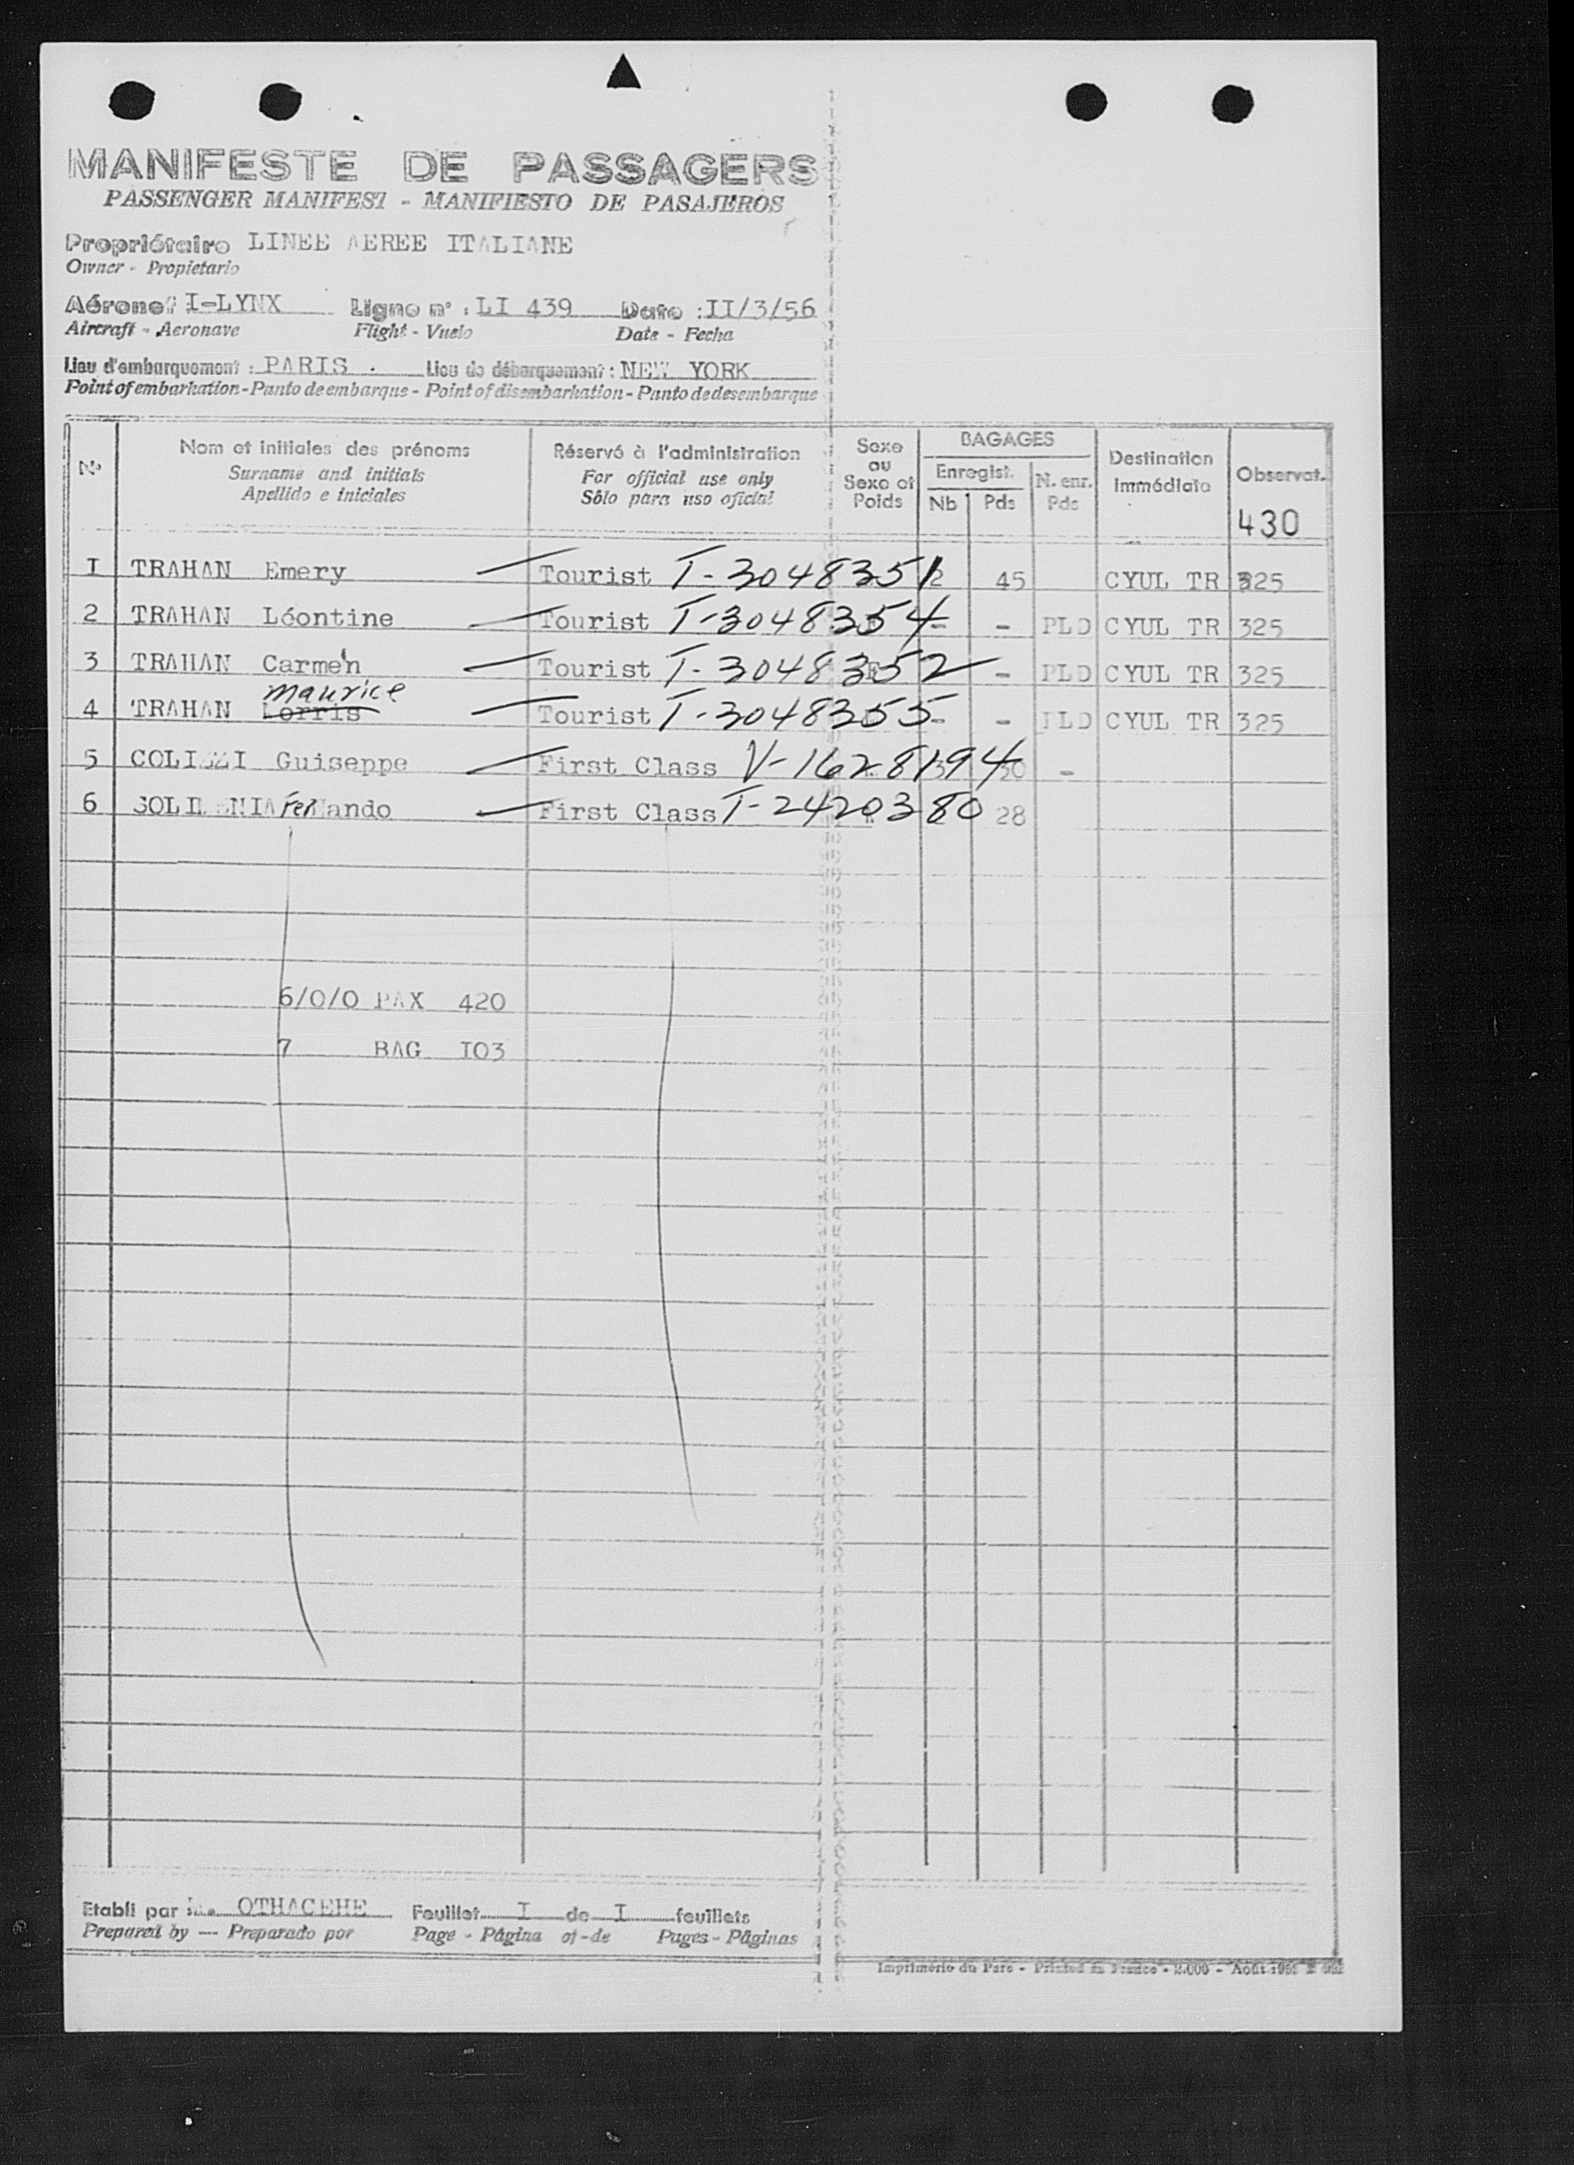 MANIFESTE DE PASSAGERS
PASSENGER MANIFEST - MANIFIESTO DE PASAJEROS
Propriétaire LINEE AEREE ITALIANE
Owner - Propietario
Aéronef I-LYNX Ligne n° : LI 439 Date : II/3/56
Aircraft - Aeronave Flight - Vuelo Date - Fecha
Lieu d'embarquement : PARIS . Lieu de débarquement : NEW YORK
Point of embarkation - Punto de embarque - Point of disembarkation - Punto de desembarque
N° Nom et initiales des prénoms Réservé à l'administration Sexe ou Sexe et Poids BAGAGES Destination Immédiate Observat.
Surname and initials For official use only Enregist. N. enr.
Apellido e iniciales Sólo para uso oficial Nb Pds Pds
430
I TRAHAN Emery Tourist T-3048351 2 45 CYUL TR 325
2 TRAHAN Léontine Tourist T-3048354 - - PLD CYUL TR 325
3 TRAHAN Carmen Tourist T-3048352 - PLD CYUL TR 325
maurice
4 TRAHAN Lorris Tourist T-3048355 - - PLD CYUL TR 325
5 Guiseppe First Class V-1628194 -
6 Fernando First Class T-2420380 28
6/0/0 PAX 420
7 BAG I03
Etabli par OTHACEHE Feuillet I de I feuillets
Prepared by — Preparado por Page - Página of - de Pages - Páginas
Imprimerie du Parc - Printed in France - 2.000 - Août